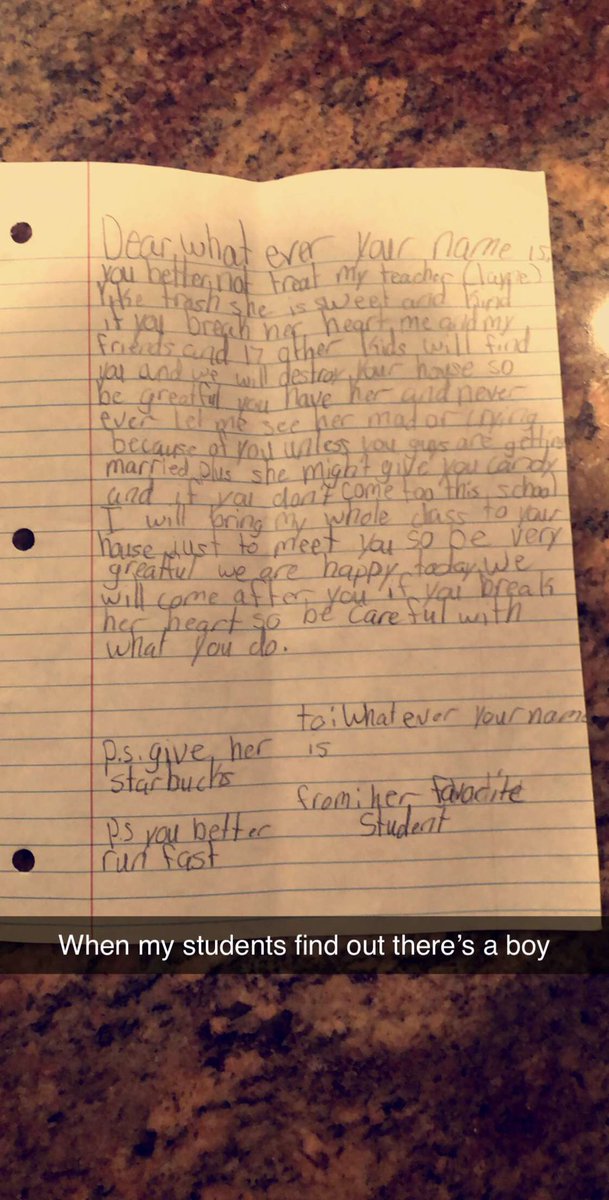 Dear, what ever your name is,
you better not treat my teacher
like trash she is sweet and kind
if you break her heart, me and my
friends and 17 other kids will find
you and we will destroy your house so
be greatful you have her and never
ever let me see her mad or crying
because of you unless you guys are getting
married, plus she might give you candy
and if you don't come too this school
I will bring my whole class to your
house just to meet you so be very
greatful we are happy today we
will come after you if you break
her heart so be careful with
what you do.
to: Whatever your name
is
from: her favorite
Student
p.s. give her
starbucks
p.s you better
run fast
When my students find out there's a boy